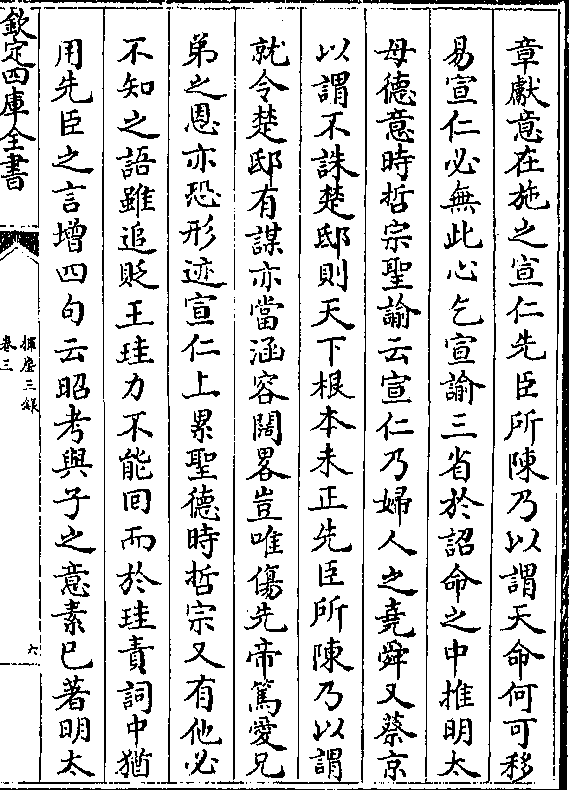 章獻意在施之宣仁先臣所陳乃以謂天命何可移
易宣仁必無此心乞宣諭三省於詔命之中推明太
母德意時哲宗聖諭云宣仁乃婦人之堯舜又蔡京
以謂不誅楚邸則天下根本未正先臣所陳乃以謂
就令楚邸有謀亦當涵容闊畧豈唯傷先帝篤愛兄
弟之恩亦恐形迹宣仁上累聖德時哲宗又有他必
不知之語雖追貶王珪力不能回而於珪責詞中猶
用先臣之言增四句云昭考與子之意素已著明太
欽定四庫全書
揮麈三錄
卷三
六